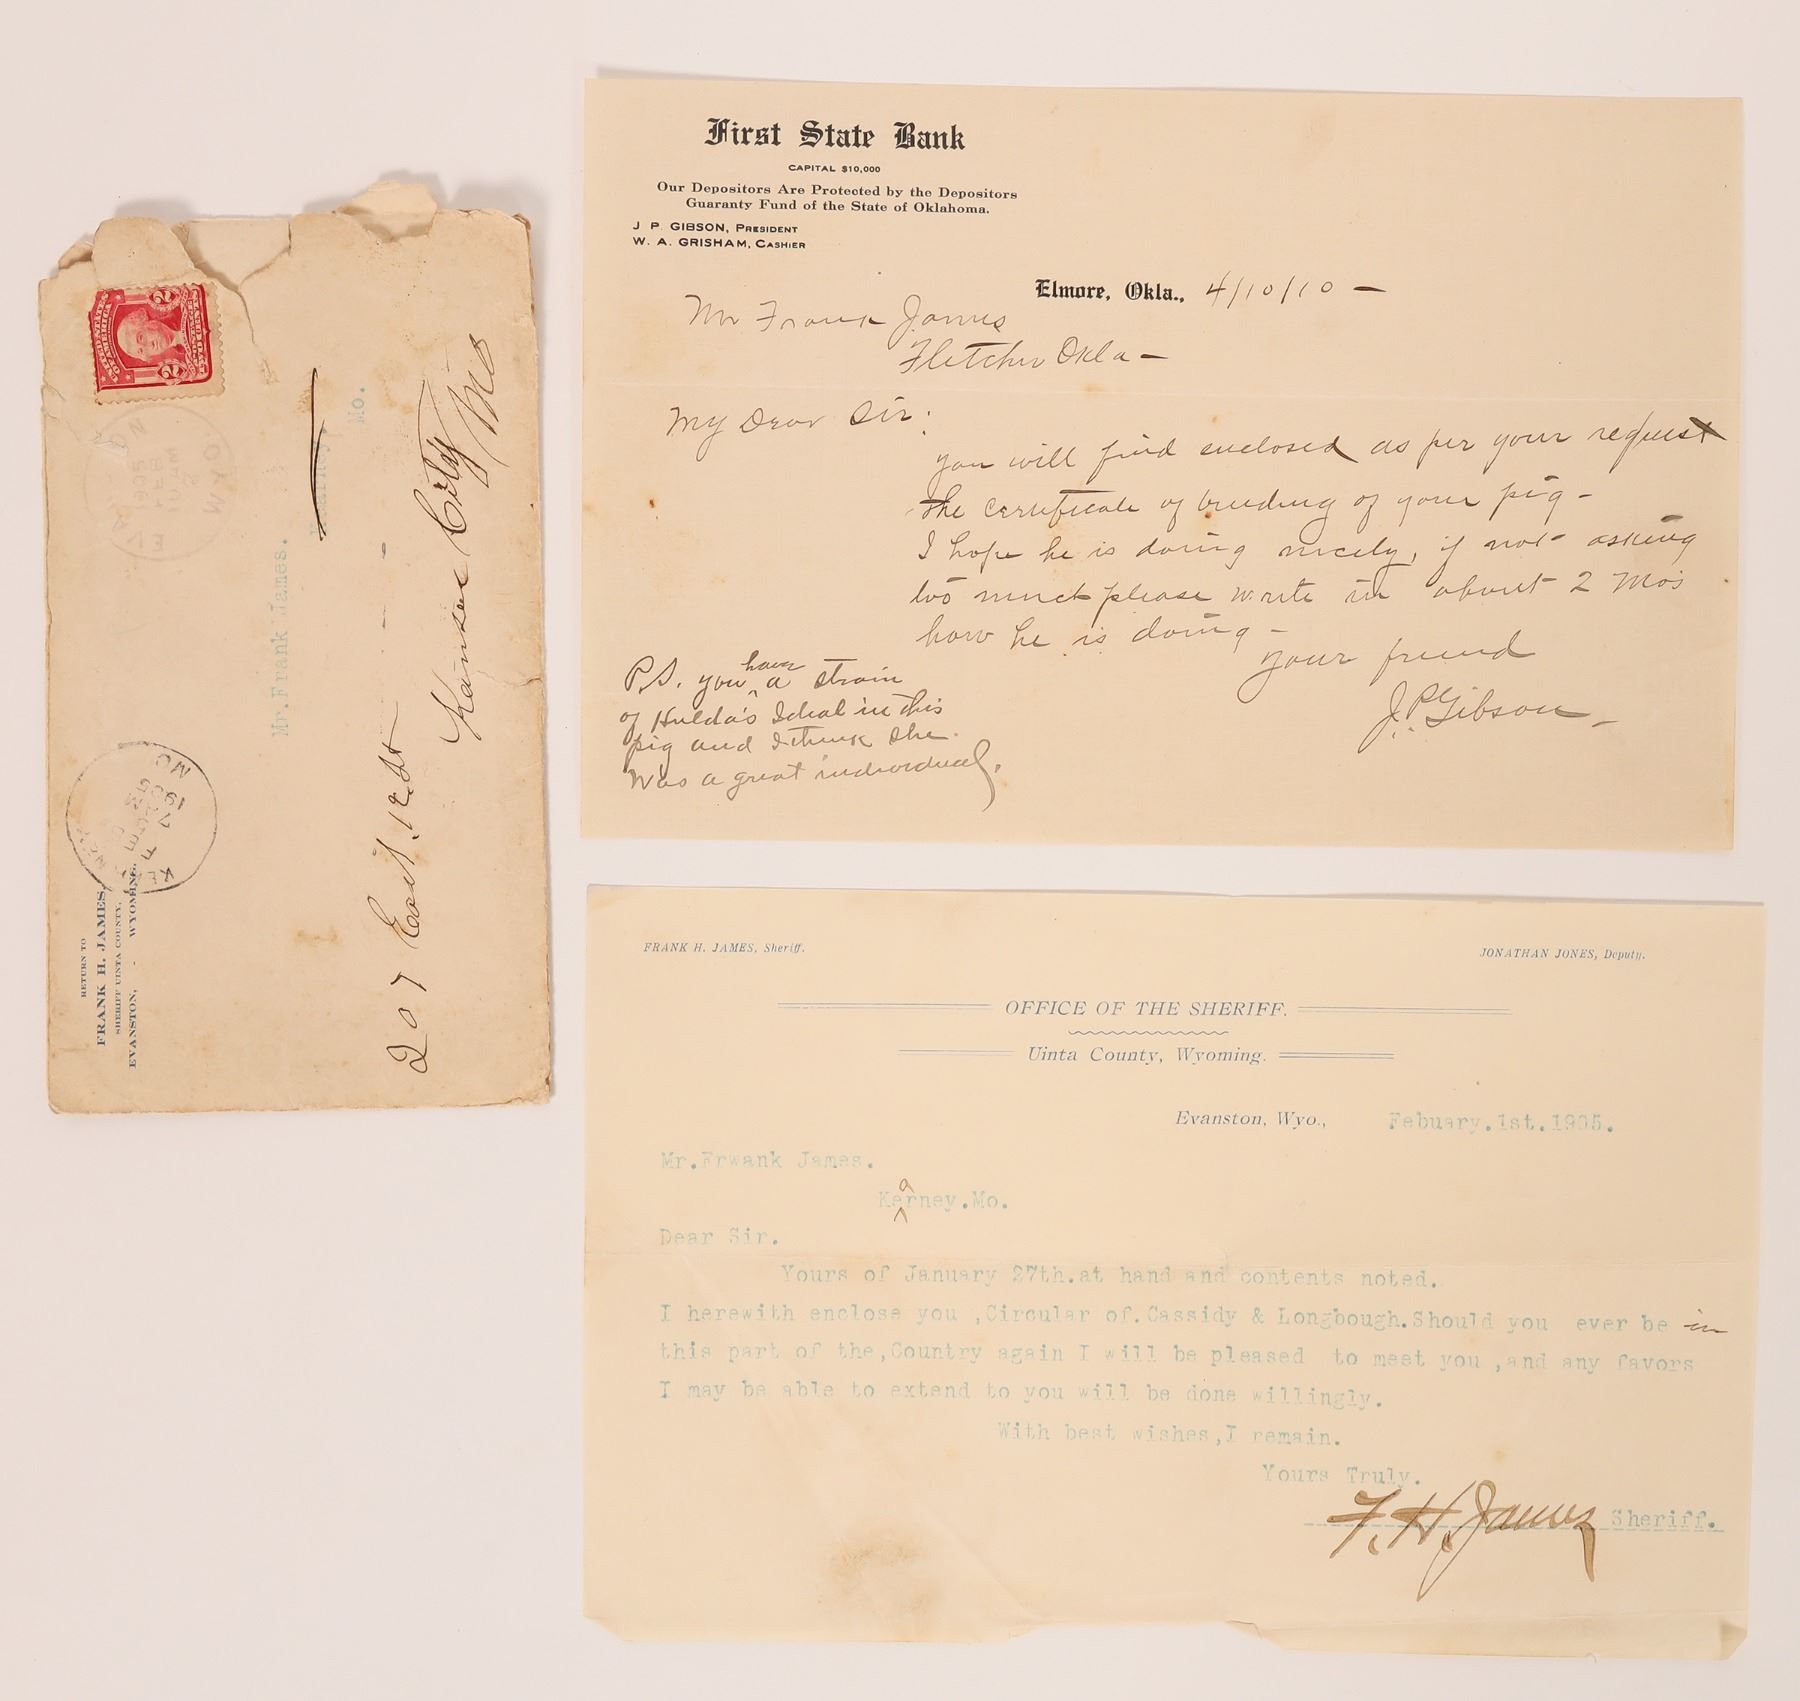 UNITED STATES
OF AMERICA
POSTAGE
TWO CENTS
2 2
1905
FEB
WYO.
Mr.Frank James.
Mo.
207 East. 12 St
Kansas City Mo
FEB
1905
MO
RETURN TO
FRANK H. JAMES,
SHERIFF UINTA COUNTY,
EVANSTON, - WYOMING.
First State Bank
CAPITAL $10,000
Our Depositors Are Protected by the Depositors
Guaranty Fund of the State of Oklahoma.
J P GIBSON, PRESIDENT
W. A. GRISHAM, CASHIER
Elmore, Okla., 4/10/10 -
Mr Frank James
Fletcher Okla -
My Dear Sir:
you will find enclosed as per your request
the certificate of breeding of your pig -
I hope he is doing nicely, if not asking
too much please write in about 2 Mo's
how he is doing -
your friend
J.P. Gibson -
P.S. you have a strain
of Hulda's Ideal in this
pig and I think she
was a great individual.
FRANK H. JAMES, Sheriff.
JONATHAN JONES, Deputy.
OFFICE OF THE SHERIFF.
Uinta County, Wyoming.
Evanston, Wyo., Febuary.1st.1905.
Mr.Frwank James.
Kearney.Mo.
Dear Sir.
Yours of January 27th.at hand and contents noted.
I herewith enclose you ,Circular of.Cassidy & Longbough.Should you ever be in
this part of the,Country again I will be pleased to meet you ,and any favors
I may be able to extend to you will be done willingly.
With best wishes,I remain.
Yours Truly.
F. H. James Sheriff.